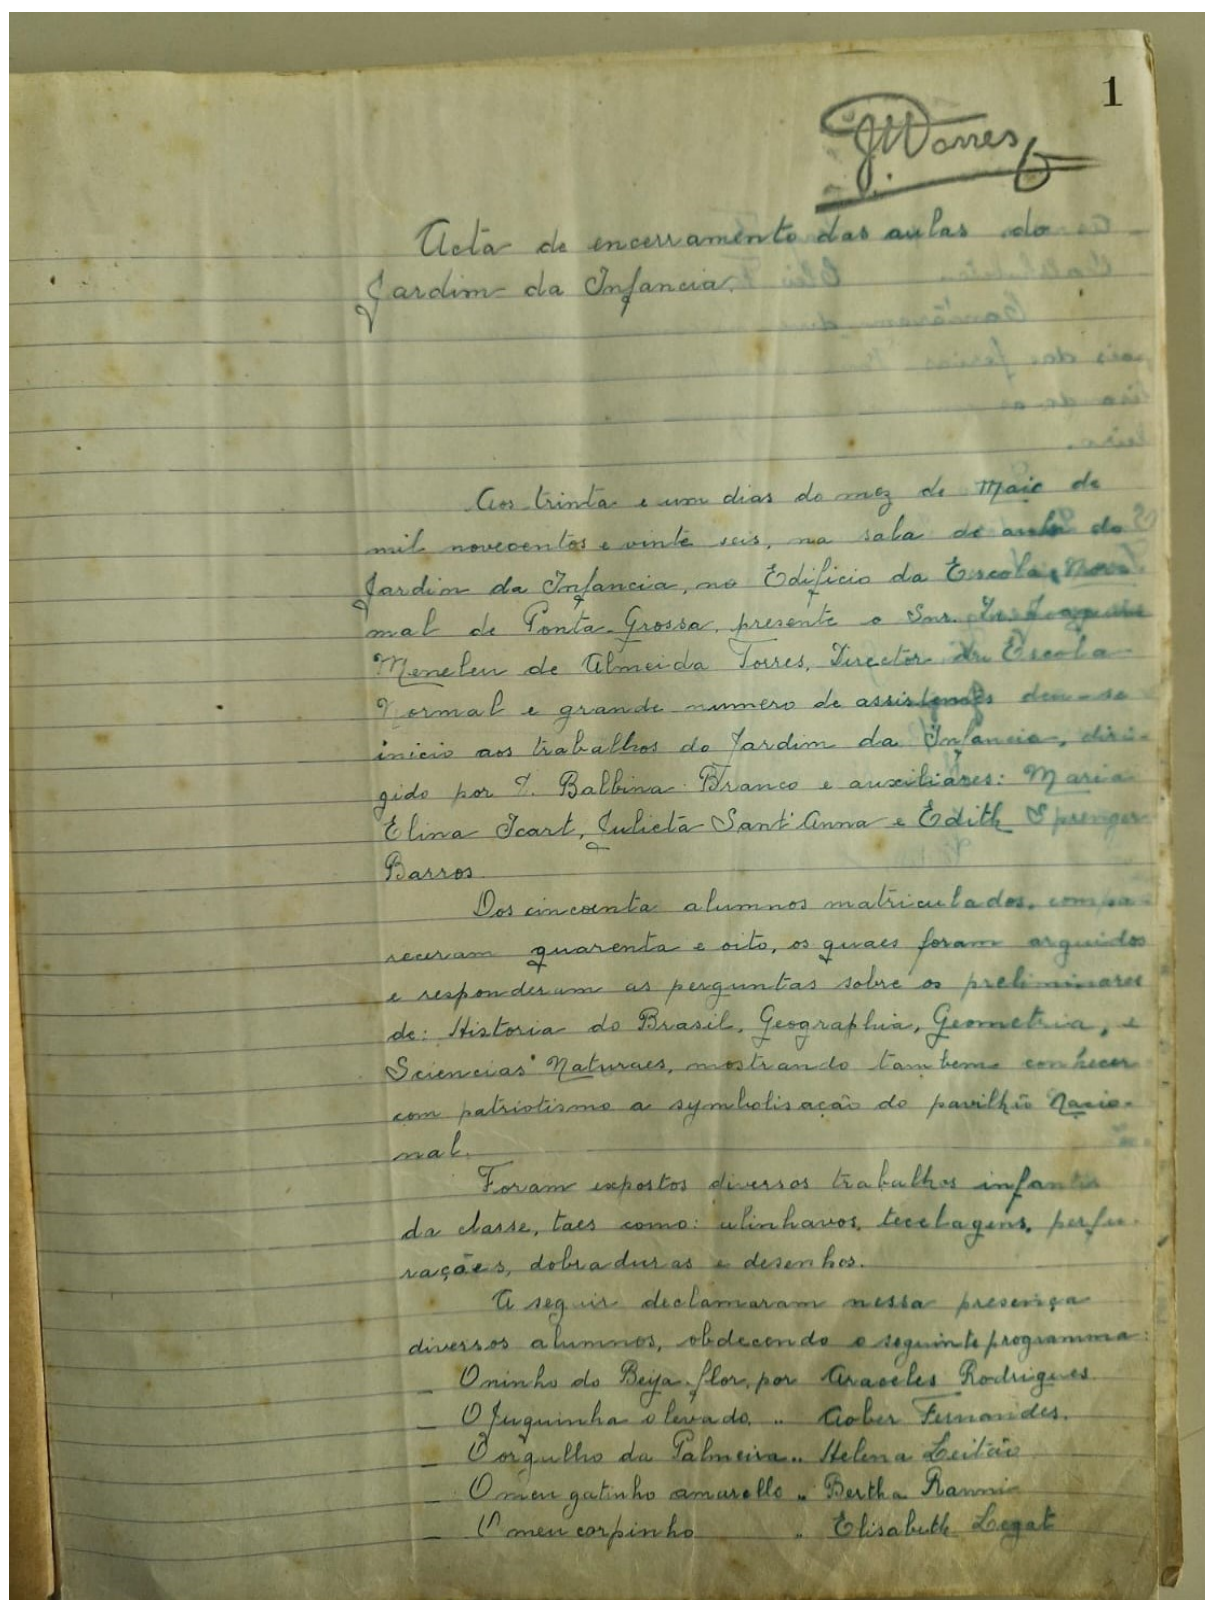 1
JMTorres
Acta de encerramento das aulas do
Jardim da Infancia.
Aos trinta e um dias do mez de Maio de
mil novecentos e vinte seis, na sala de aula do
Jardim da Infancia, no Edificio da Escola Nor-
mal de Ponta-Grossa, presente o Snr.
Meneleu de Almeida Torres, Director da Escola
Normal e grande numero de assistentes deu-se
inicio aos trabalhos do Jardim da Infancia, diri-
gido por D. Balbina Branco e auxiliares: Maria
Elina Icart, Julieta Sant'Anna e Edith Sprenger
Barros.
Dos cincoenta alumnos matriculados, compa-
receram quarenta e oito, os quaes foram arguidos
e responderam as perguntas sobre os preliminares
de: Historia do Brasil, Geographia, Geometria, e
Sciencias Naturaes, mostrando tambem conhecer
com patriotismo a symbolisação do pavilhão Nacio-
nal.
Foram expostos diversos trabalhos infantis
da classe, taes como: alinhavos, tecelagens, perfu-
rações, dobraduras e desenhos.
A seguir declamaram nessa presença
diversos alumnos, obdecendo o seguinte programma:
– O ninho do Beija-flor, por Araceles Rodrigues.
– O Juquinha o levado, " Aober Fernandes.
– O orgulho da Palmeira " Helena Leitão
– O meu gatinho amarello " Bertha Ranni
– O meu corpinho " Elisabeth Legat